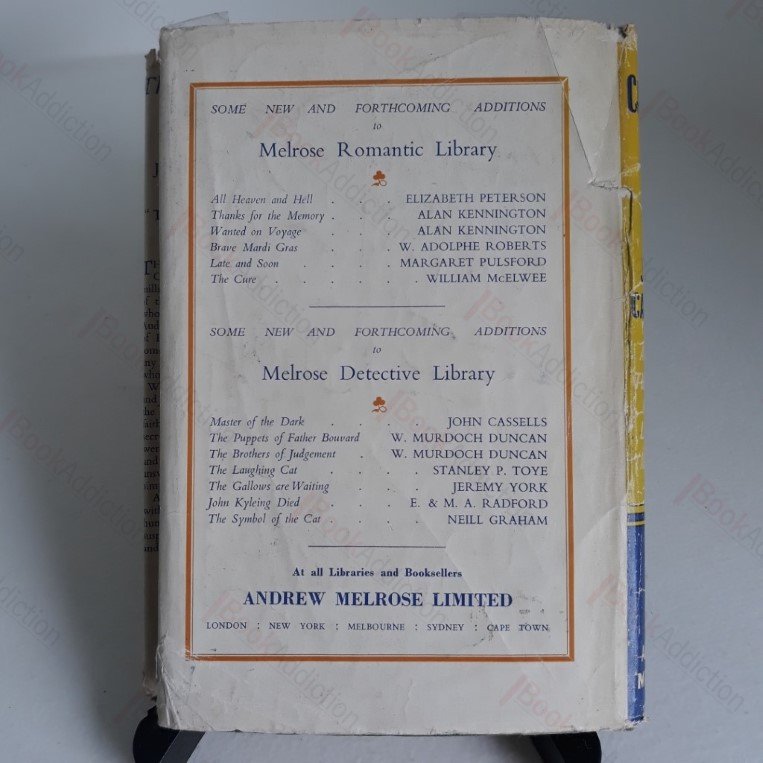 SOME NEW AND FORTHCOMING ADDITIONS
to
Melrose Romantic Library
All Heaven and Hell . . . ELIZABETH PETERSON
Thanks for the Memory . . . ALAN KENNINGTON
Wanted on Voyage . . . ALAN KENNINGTON
Brave Mardi Gras . . . W. ADOLPHE ROBERTS
Late and Soon . . . . MARGARET PULSFORD
The Cure . . . . . . WILLIAM McELWEE
SOME NEW AND FORTHCOMING ADDITIONS
to
Melrose Detective Library
Master of the Dark . . . JOHN CASSELLS
The Puppets of Father Bouvard W. MURDOCH DUNCAN
The Brothers of Judgement . W. MURDOCH DUNCAN
The Laughing Cat . . . . STANLEY P. TOYE
The Gallows are Waiting . . . JEREMY YORK
John Kyleing Died . . . E. & M. A. RADFORD
The Symbol of the Cat . . . NEILL GRAHAM
At all Libraries and Booksellers
ANDREW MELROSE LIMITED
LONDON : NEW YORK : MELBOURNE : SYDNEY : CAPE TOWN
BookAddiction